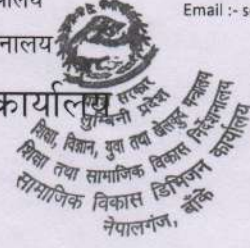 त्रालय
Email :- s
नालय
कार्यालय
सरकार
लुम्बिनी प्रदेश
शिक्षा, विज्ञान, युवा तथा खेलकुद मन्त्रालय
शिक्षा तथा सामाजिक विकास निर्देशनालय
सामाजिक विकास डिभिजन कार्यालय
नेपालगंज, बाँके